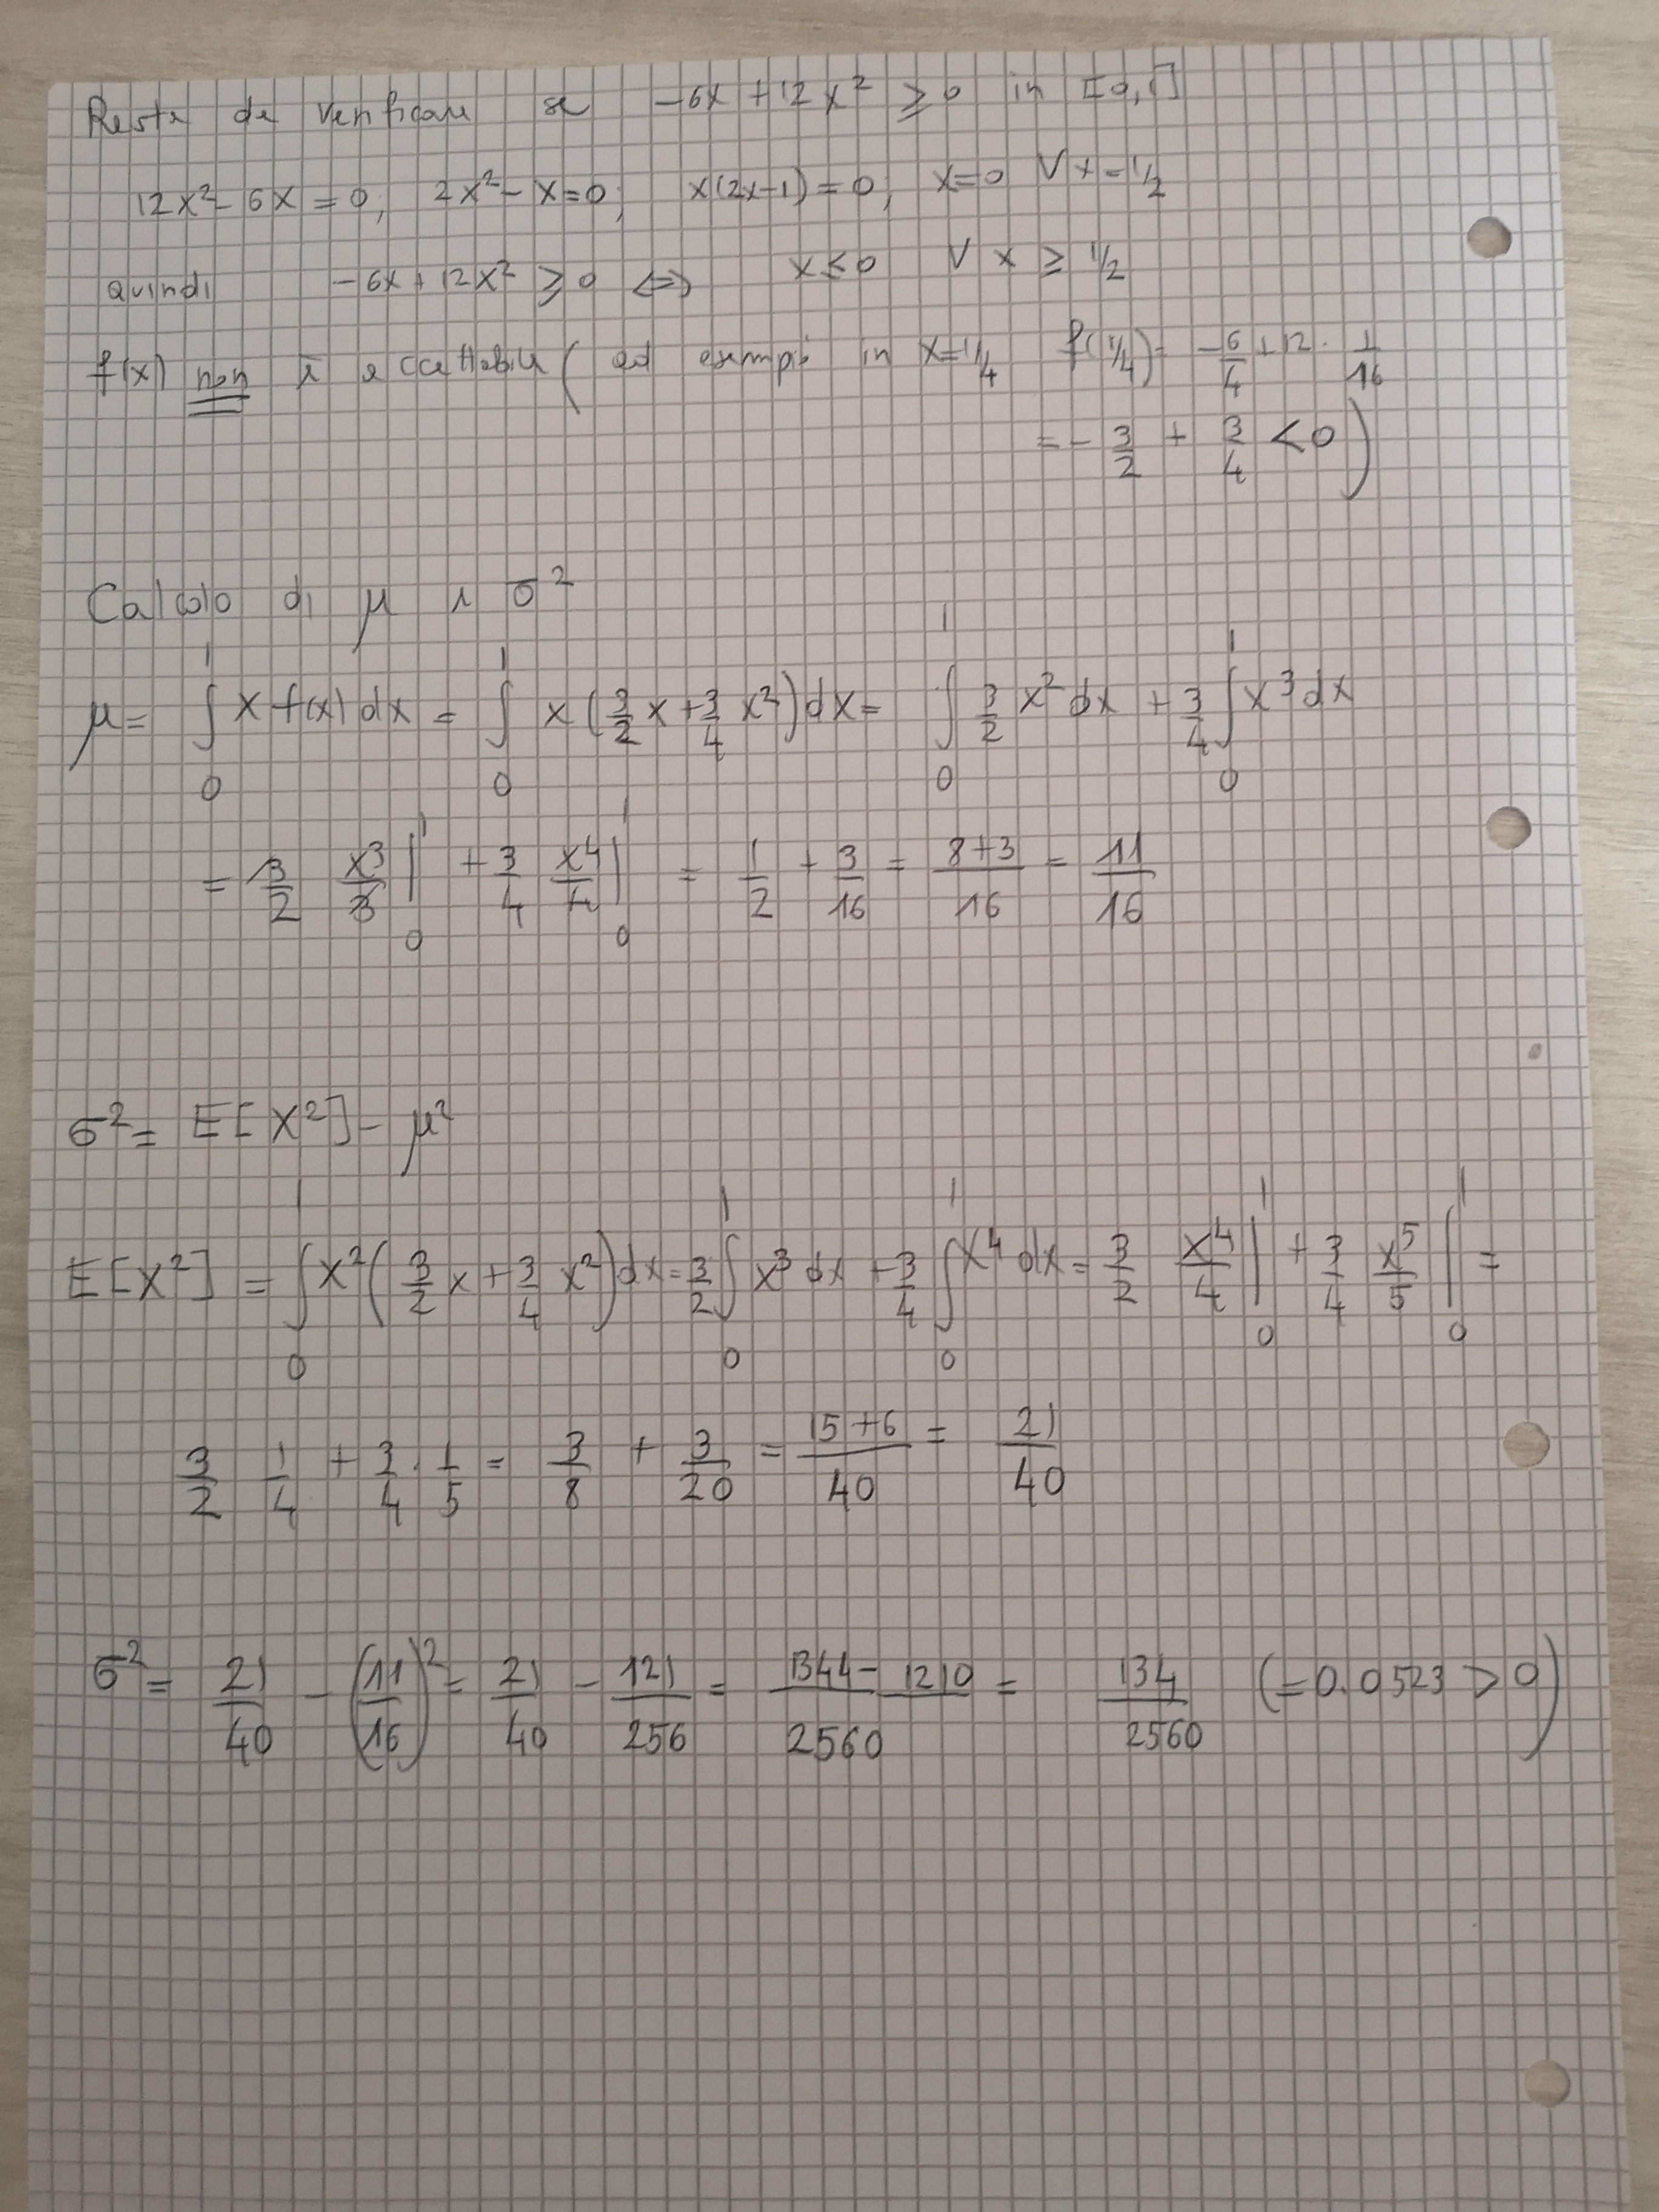 Resta da verificare se -6x + 12x² ≥ 0 in [0,1]
12x² - 6x = 0; 2x² - x = 0; x(2x-1) = 0; x=0 ∨ x = 1/2
quindi -6x + 12x² ≥ 0 ⇔ x ≤ 0 ∨ x ≥ 1/2
f(x) non è accettabile (ad esempio in x=1/4 f(1/4) = -6/4 + 12 · 1/16
= - 3/2 + 3/4 < 0)
Calcolo di μ e σ²
μ = ∫₀¹ x f(x) dx = ∫₀¹ x (3/2 x + 3/4 x²) dx = ∫₀¹ 3/2 x² dx + 3/4 ∫₀¹ x³ dx
= 3/2 x³/3 |₀¹ + 3/4 x⁴/4 |₀¹ = 1/2 + 3/16 = (8+3)/16 = 11/16
σ² = E[X²] - μ²
E[X²] = ∫₀¹ x² (3/2 x + 3/4 x²) dx = 3/2 ∫₀¹ x³ dx + 3/4 ∫₀¹ x⁴ dx = 3/2 x⁴/4 |₀¹ + 3/4 x⁵/5 |₀¹ =
3/2 1/4 + 3/4 · 1/5 = 3/8 + 3/20 = (15+6)/40 = 21/40
σ² = 21/40 - (11/16)² = 21/40 - 121/256 = (1344 - 1210)/2560 = 134/2560 (= 0.0523 > 0)